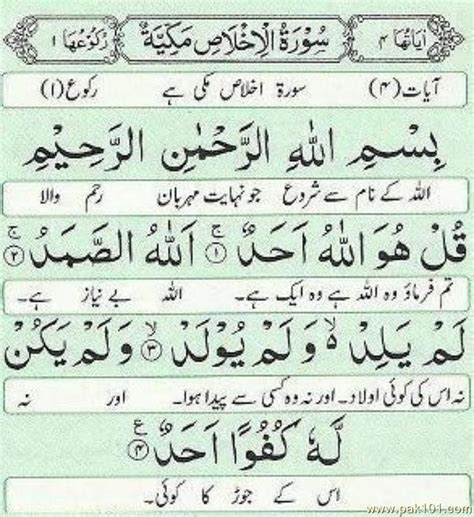 اٰيَاتُهَا ٤ سُوْرَةُ الْاِخْلَاصِ مَكِّيَّةٌ رُكُوْعُهَا ١
آیات (۴) سورۃ اخلاص مکی ہے رکوع (۱)
بِسْمِ اللهِ الرَّحْمٰنِ الرَّحِيْمِ
اللہ کے نام سے شروع جو نہایت مہربان رحم والا
قُلْ هُوَ اللهُ اَحَدٌ ۚ﴿۱﴾ اَللهُ الصَّمَدُ ۚ﴿۲﴾
تم فرماؤ وہ اللہ ہے وہ ایک ہے۔ اللہ بے نیاز ہے۔
لَمْ يَلِدْ ۙ وَلَمْ يُوْلَدْ ۙ﴿۳﴾ وَلَمْ يَكُنْ
نہ اس کی کوئی اولاد۔ اور نہ وہ کسی سے پیدا ہوا۔ اور نہ
لَّهٗ كُفُوًا اَحَدٌ ﴿۴﴾ ع
اس کے جوڑ کا کوئی۔
www.pak101.com